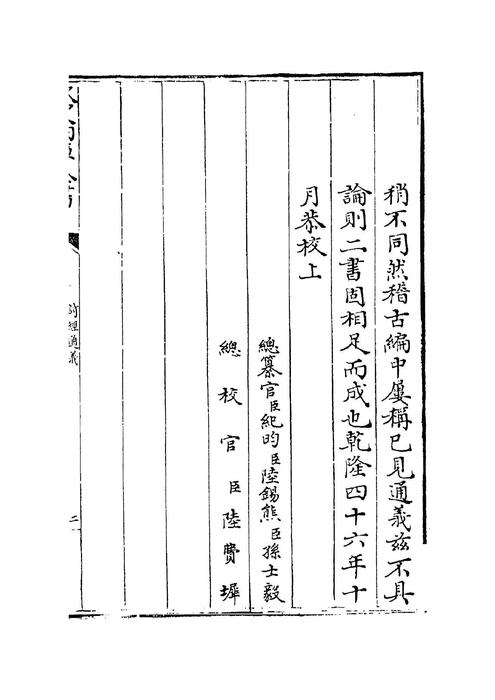 稍不同然稽古編中屢稱已見通義兹不具
論則二書固相足而成也乾隆四十六年十
月恭校上
總纂官臣紀昀臣陸錫熊臣孫士毅
總校官臣陸費墀
詩經通義
二